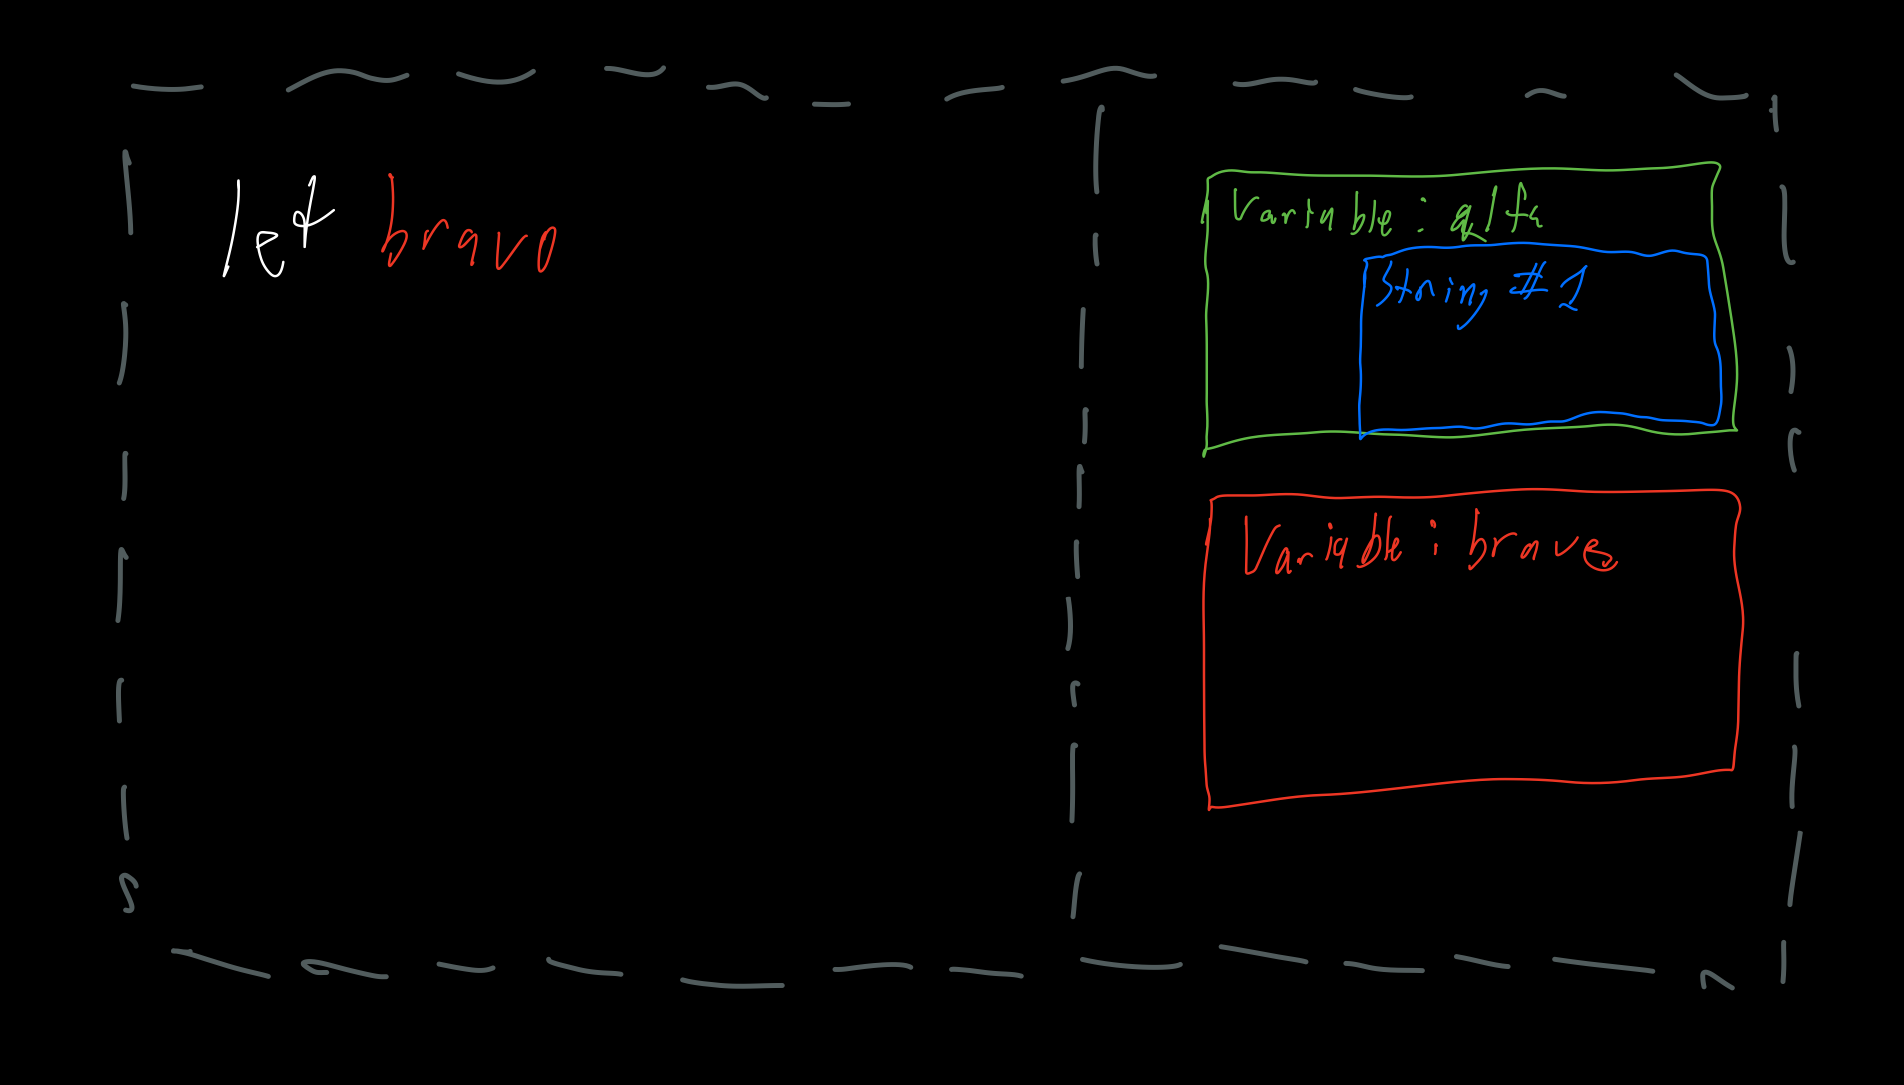 let bravo
Variable : alfa
String #1
Variable : bravo